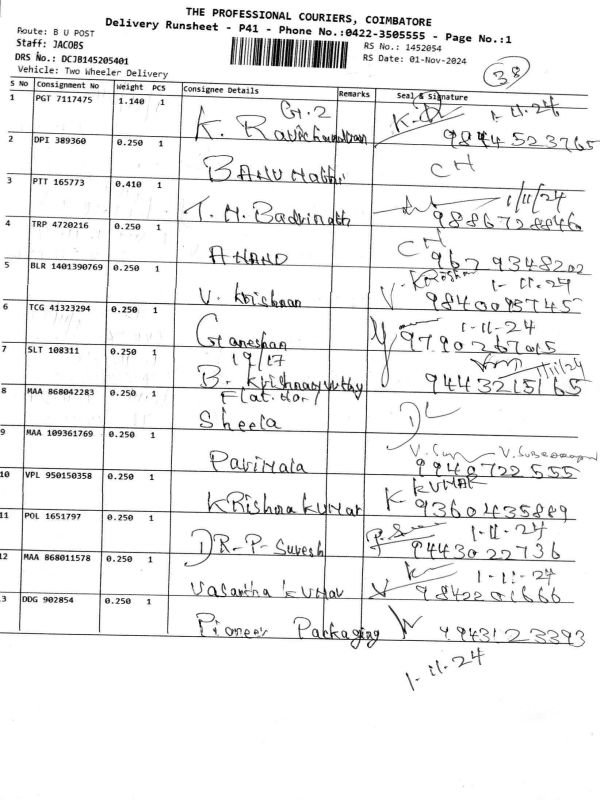 THE PROFESSIONAL COURIERS, COIMBATORE
Delivery Runsheet - P41 - Phone No.:0422-3505555 - Page No.:1
Route: B U POST
Staff: JACOBS
DRS No.: DCJB145205401
Vehicle: Two Wheeler Delivery
RS No.: 1452054
RS Date: 01-Nov-2024
38
S No Consignment No Weight PCS Consignee Details Remarks Seal & Signature
1 PGT 7117475 1.140 1 G.2 K. Ravichandran 1-11-24
2 DPI 389360 0.250 1 BANUMathi CH
3 PTT 165773 0.410 1 T. N. Badrinath 1/11/24
4 TRP 4720216 0.250 1 ANAND CH 9679348202
5 BLR 1401390769 0.250 1 V. Krishnan V. Krishn 1-11-24
6 TCG 41323294 0.250 1 Ganeshan 1-11-24 9790267015
7 SLT 108311 0.250 1 19/17 B. Krishnamurthy 1/11/24 9443215165
8 MAA 868042283 0.250 1 Sheela DL
9 MAA 109361769 0.250 1 Parimala 9940722555
10 VPL 950150358 0.250 1 KRishna kuMar K KUMAR 9360435889
11 POL 1651797 0.250 1 DR-P-Suresh 1-11-24 9443022736
12 MAA 868011578 0.250 1 Vasantha kuMar 1-11-24 9842201666
13 DDG 902854 0.250 1 Pioneer Packaging
1-11-24